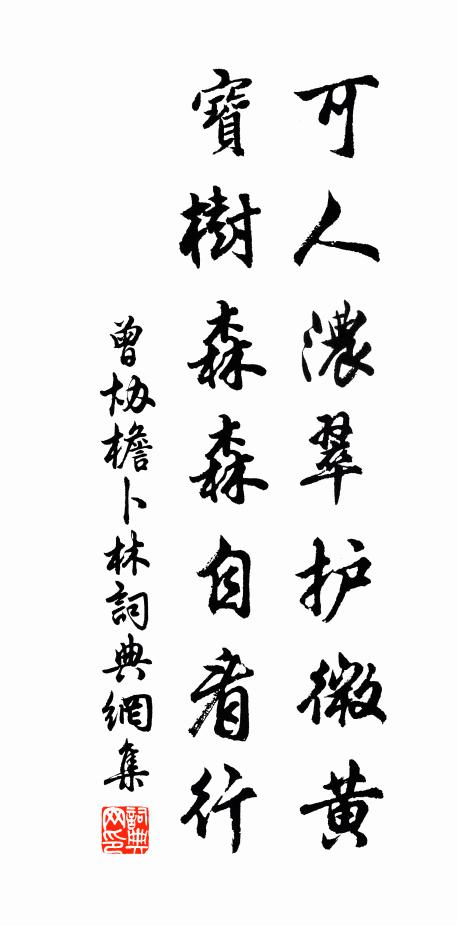 可人濃翠护微黄
寶樹森森自着行
曾协檐卜林詞典網集
詞典网印